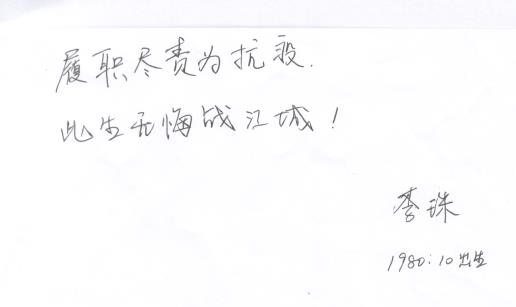 履职尽责为抗疫.
此生无悔战江城!
李珠
1980:10出生